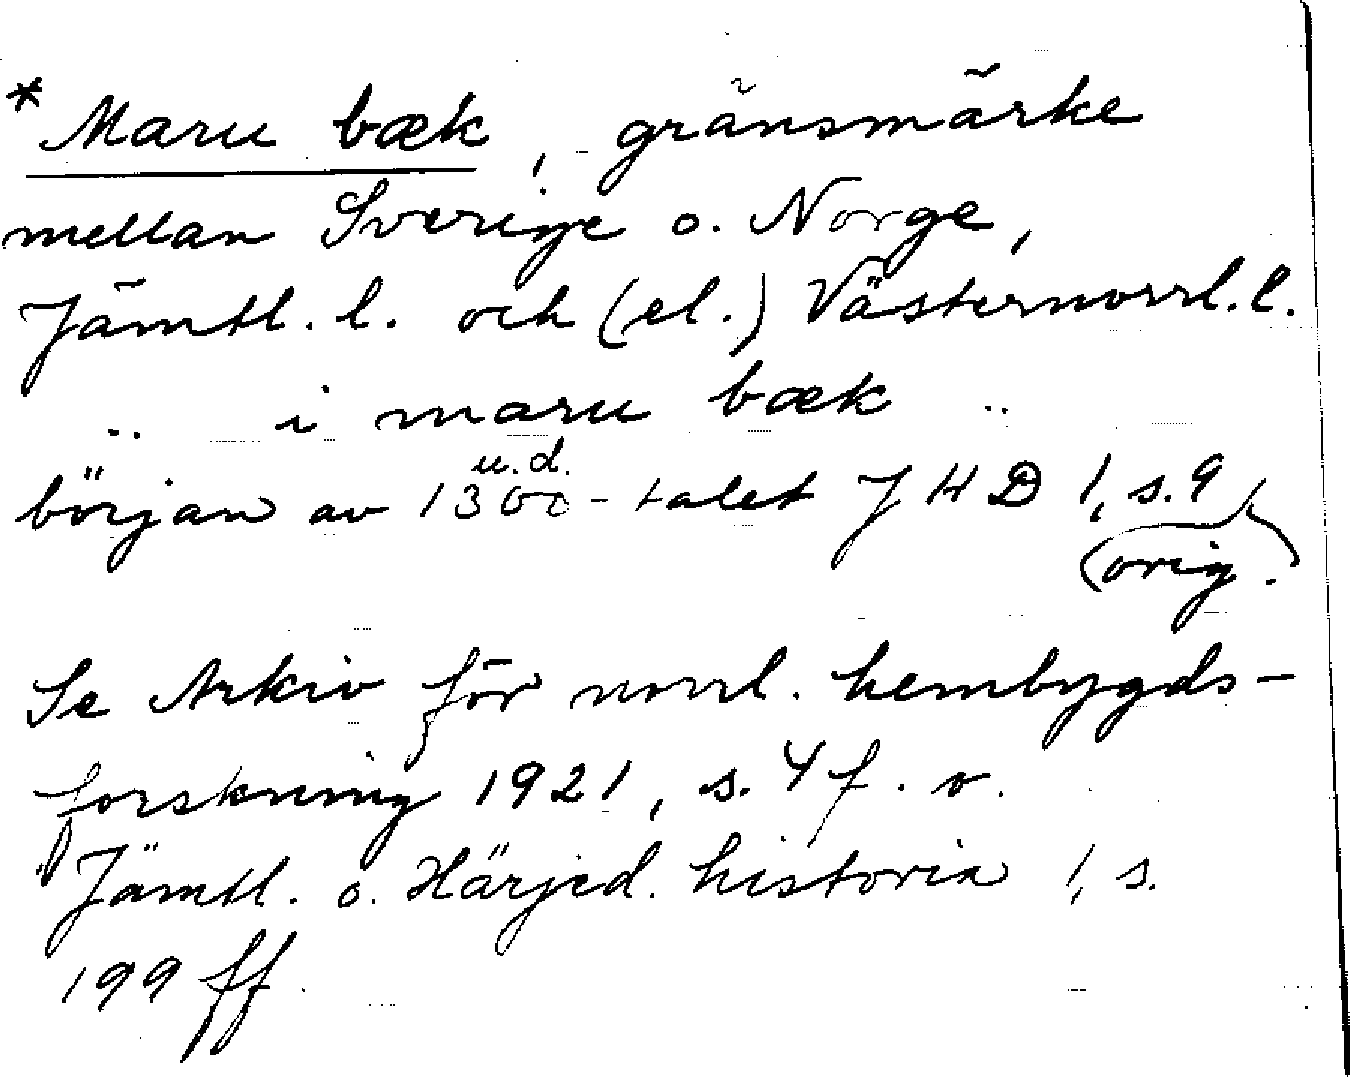 *Maru bæk, gränsmärke
mellan Sverige o. Norge,
Jämtl. l. och (el.) Västernorrl. l.
.. i maru bæk ..
u.d.
början av 1300-talet JHD 1, s. 9
(orig.)
Se Arkiv för norrl. hembygds-
forskning 1921, s. 4 f. o.
Jämtl. o. Härjed. historia 1, s.
199 ff.